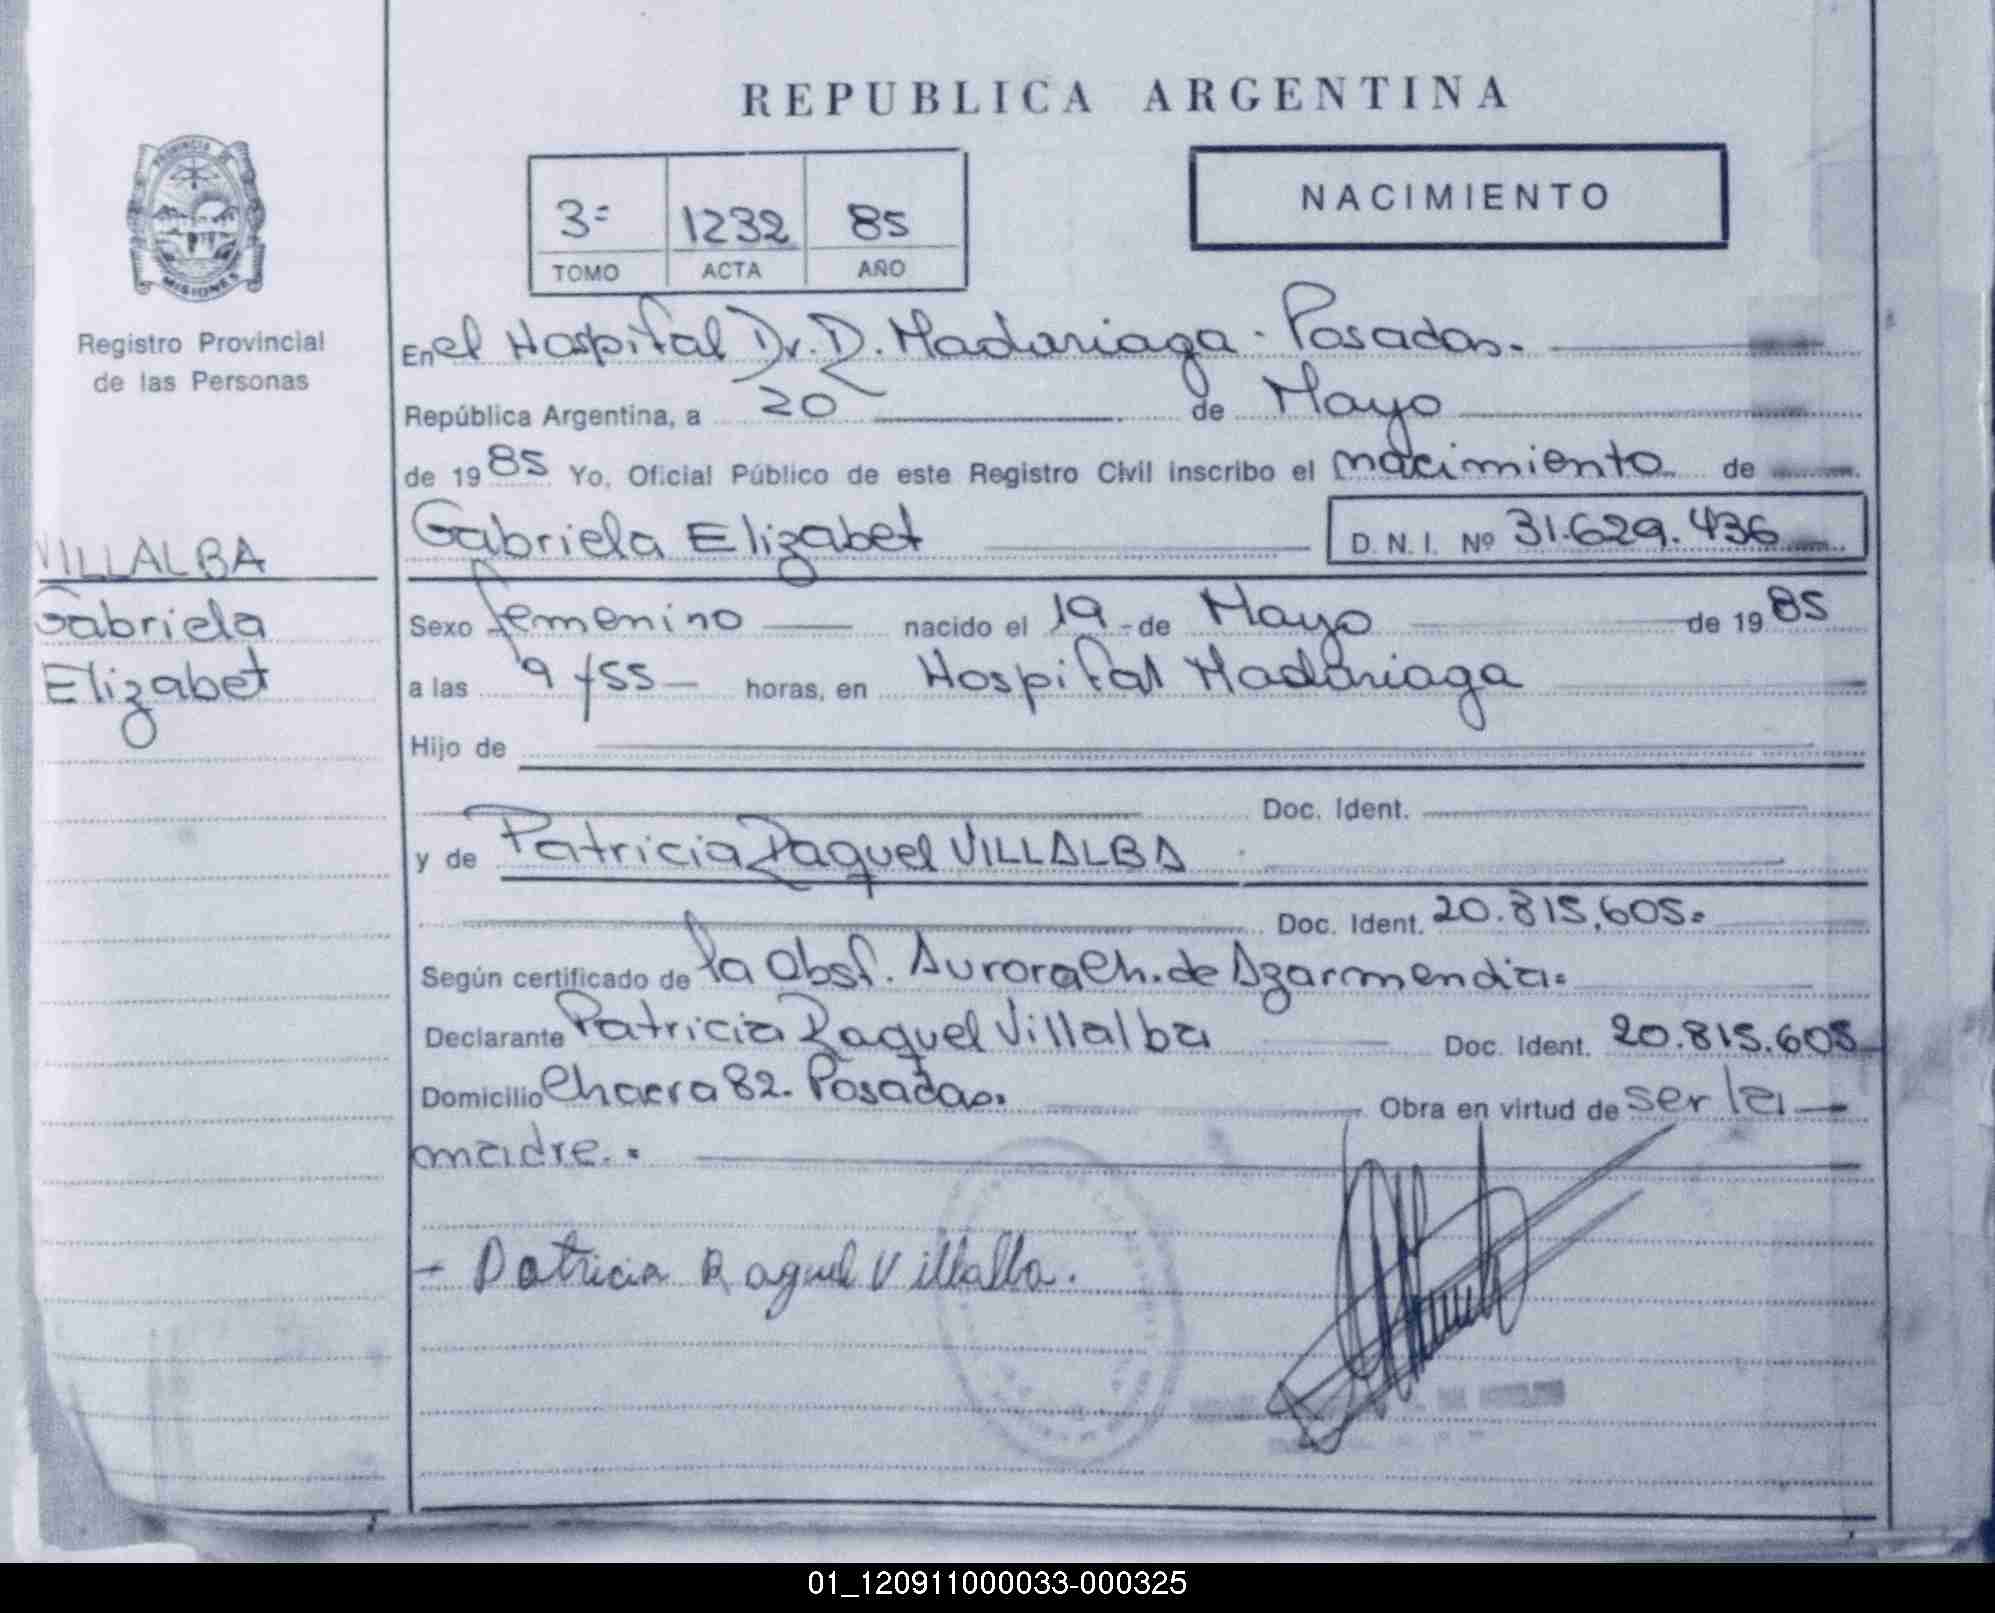 REPUBLICA ARGENTINA
PROVINCIA DE
MISIONES
Registro Provincial
de las Personas
NACIMIENTO
3= 1232 85
TOMO ACTA AÑO
En el Hospital Dr. R. Madariaga - Posadas.
República Argentina, a 20 de Mayo
de 1985 Yo, Oficial Público de este Registro Civil inscribo el nacimiento de
VILLALBA
Gabriela
Elizabet
Gabriela Elizabet D. N. I. Nº 31.629.436
Sexo femenino nacido el 19 - de Mayo de 1985
a las 9 y 55 horas, en Hospital Madariaga
Hijo de
Doc. Ident.
y de Patricia Raquel VILLALBA
Doc. Ident. 20.815.605=
Según certificado de la Obst. Aurora Ch. de Azarmendia=
Declarante Patricia Raquel Villalba Doc. Ident. 20.815.605
Domicilio Chacra 82. Posadas. Obra en virtud de ser la
madre.
- Patricia Raquel Villalba.
01_120911000033-000325